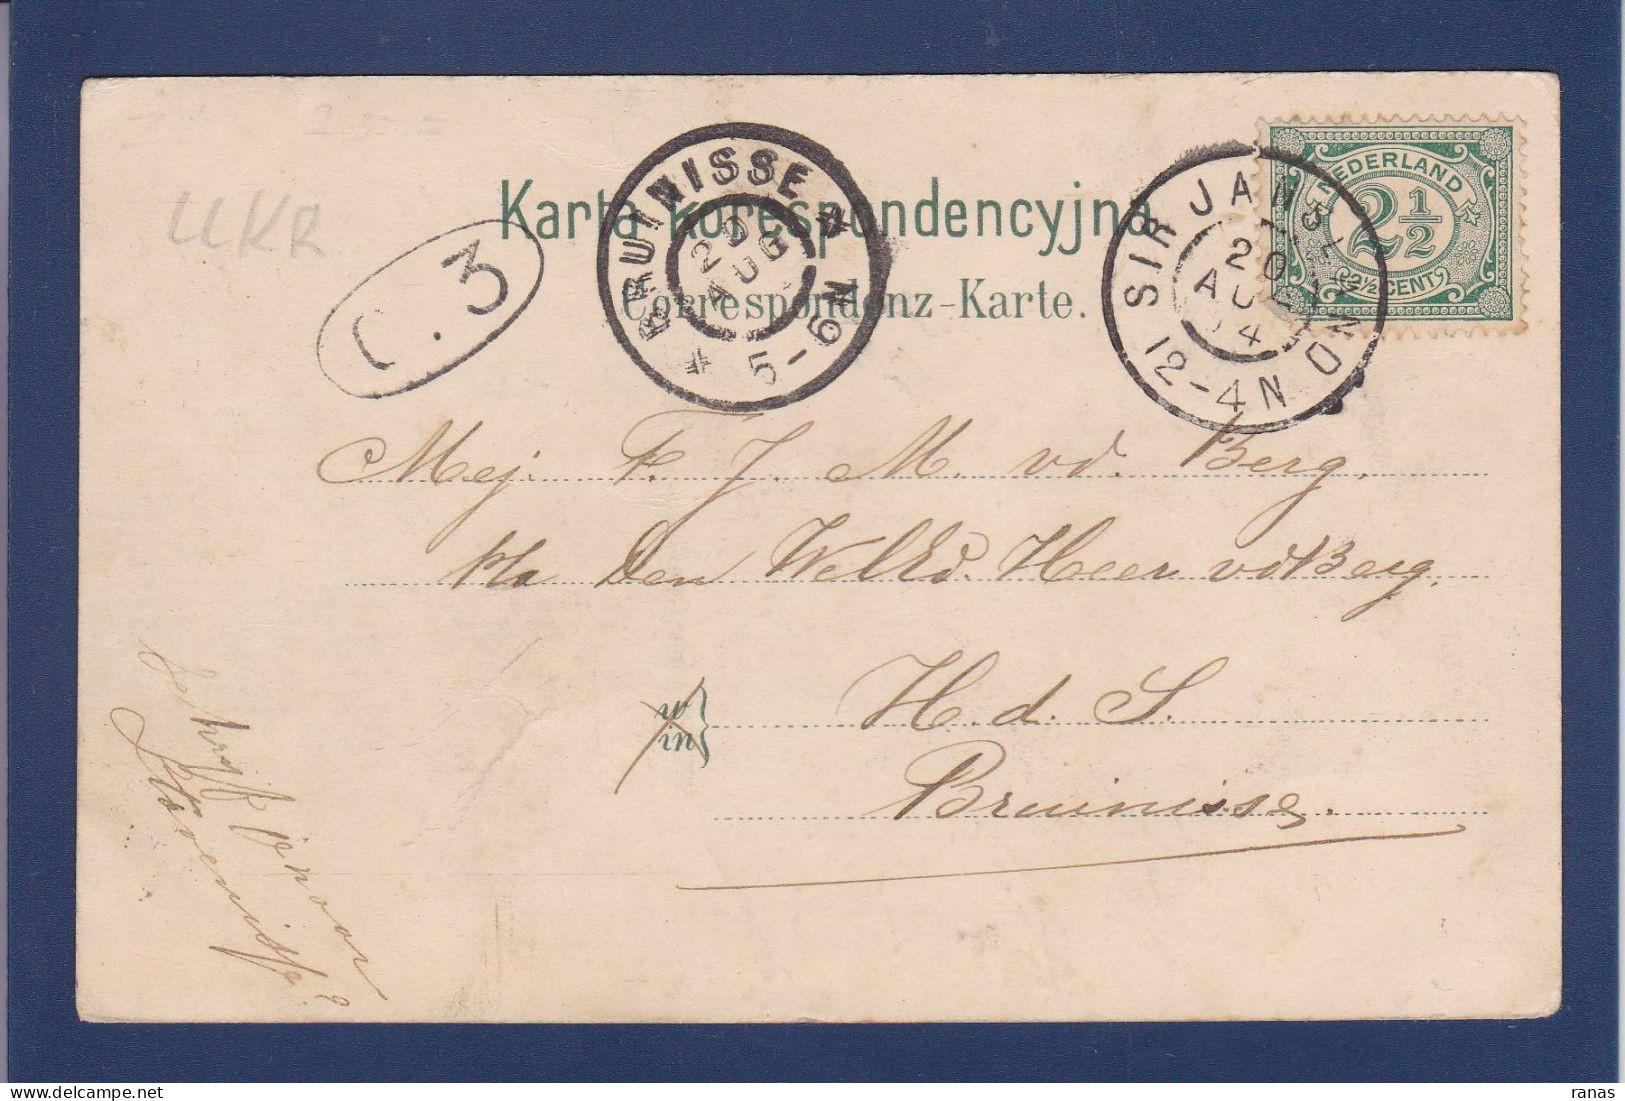 UKR
C. 3
Karta korespondencyjna
Correspondenz-Karte.
BRUINISSE
20 AUG
5-6N
SIR JANSLAND
20
AUG
04
12-4N
NEDERLAND
2½
2½ CENT
Mej. F. J. M. vd. Berg.
p/a Den WelEd. Heer vd Berg.
w
in
H. d. S.
Bruinisse.
ranas
delcampe.net